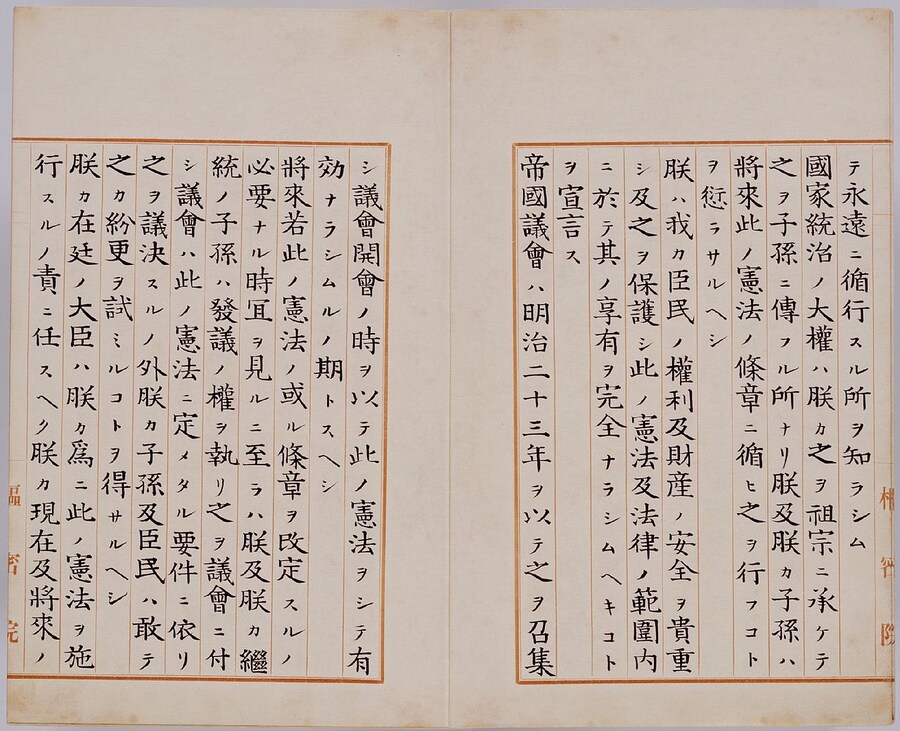 テ永遠ニ循行スル所ヲ知ラシム
國家統治ノ大權ハ朕カ之ヲ祖宗ニ承ケテ
之ヲ子孫ニ傳フル所ナリ朕及朕カ子孫ハ
將來此ノ憲法ノ條章ニ循ヒ之ヲ行フコト
ヲ愆ラサルヘシ
朕ハ我カ臣民ノ權利及財産ノ安全ヲ貴重
シ及之ヲ保護シ此ノ憲法及法律ノ範圍内
ニ於テ其ノ享有ヲ完全ナラシムヘキコト
ヲ宣言ス
帝國議會ハ明治二十三年ヲ以テ之ヲ召集
シ議會開會ノ時ヲ以テ此ノ憲法ヲシテ有
効ナラシムルノ期トスヘシ
將來若此ノ憲法ノ或ル條章ヲ改定スルノ
必要ナル時宜ヲ見ルニ至ラハ朕及朕カ繼
統ノ子孫ハ發議ノ權ヲ執リ之ヲ議會ニ付
シ議會ハ此ノ憲法ニ定メタル要件ニ依リ
之ヲ議決スルノ外朕カ子孫及臣民ハ敢テ
之カ紛更ヲ試ミルコトヲ得サルヘシ
朕カ在廷ノ大臣ハ朕カ爲ニ此ノ憲法ヲ施
行スルノ責ニ任スヘク朕カ現在及將來ノ
樞密院